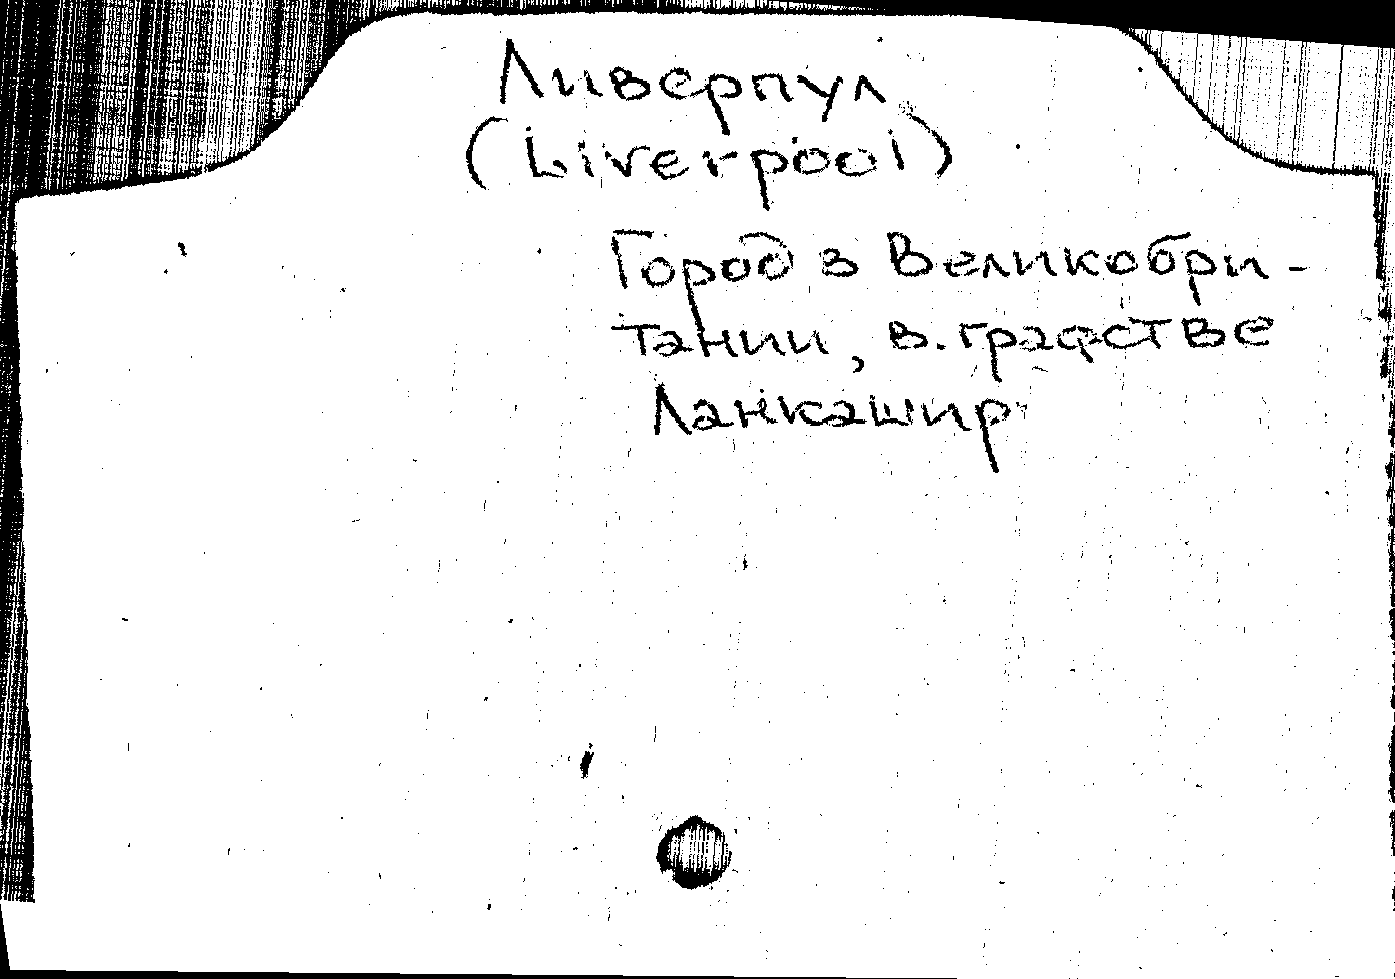 Ливерпул
(Liverpool)
Город в Великобри-
тании, в графстве
Ланкашир